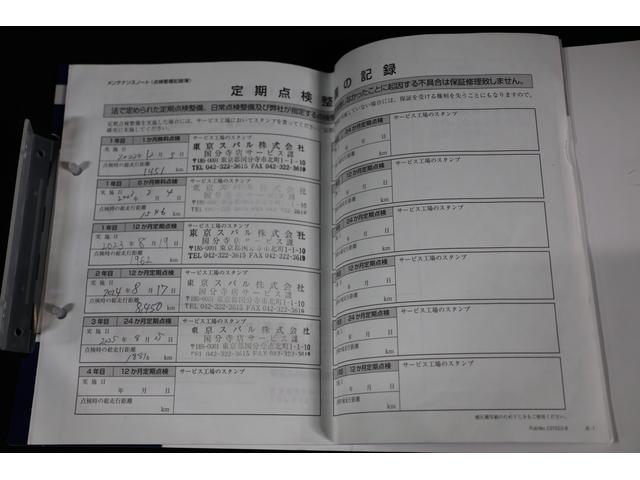 メンテナンスノート(点検整備記録簿)
定期点検整
備の記録
法で定められた定期点検整備、日常点検整備及び弊社が指定する点検整
なかったことに起因する不具合は保証修理致しません。
定期点検整備を実施した場合には、サービス工場においてスタンプを貰ってください。
確実に実施してください。
ていない場合には、保証を受ける権利を失うことにもなりますので、
1年目 1か月無料点検 サービス工場のスタンプ
実施日
2022年12月5日
点検時の総走行距離
1451 km
東京スバル株式会社
国分寺店サービス課
〒185-0001 東京都国分寺市北町1-1-10
TEL 042-322-3615 FAX 042-322-3611
1年目 6か月無料点検 サービス工場のスタンプ
実施日
点検時の総走行距離
1546 km
東京スバル株式会社
国分寺店サービス課
〒185-0001 東京都国分寺市北町1-1-10
TEL 042-322-3615 FAX 042-322-3611
1年目 12か月定期点検 サービス工場のスタンプ
実施日
2023年8月19日
点検時の総走行距離
1962 km
東京スバル株式会社
国分寺店サービス課
〒185-0001 東京都国分寺市北町1-1-10
TEL 042-322-3615 FAX 042-322-3611
2年目 12か月定期点検 サービス工場のスタンプ
実施日
2024年8月17日
点検時の総走行距離
8,450 km
東京スバル株式会社
国分寺店サービス課
〒185-0001 東京都国分寺市北町1-1-10
TEL 042-322-3615 FAX 042-322-3611
3年目 24か月定期点検 サービス工場のスタンプ
実施日
2025年8月25日
点検時の総走行距離
km
東京スバル株式会社
国分寺店サービス課
〒185-0001 東京都国分寺市北町1-1-10
TEL 042-322-3615 FAX 042-322-3611
4年目 12か月定期点検 サービス工場のスタンプ
実施日
年 月 日
点検時の総走行距離
km
24か月定期点検 サービス工場のスタンプ
年 月 日
km
12か月定期点検 サービス工場のスタンプ
年 月 日
km
24か月定期点検 サービス工場のスタンプ
年 月 日
km
12か月定期点検 サービス工場のスタンプ
年 月 日
km
24か月定期点検 サービス工場のスタンプ
年 月 日
km
12か月定期点検 サービス工場のスタンプ
年 月 日
km